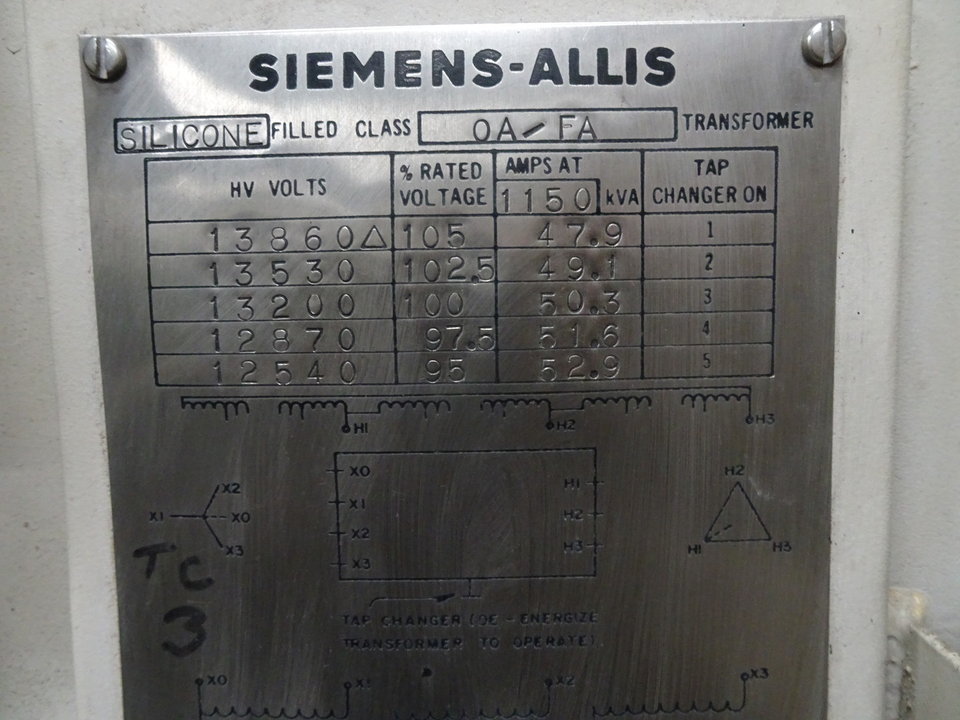 SIEMENS-ALLIS
SILICONE FILLED CLASS OA/FA TRANSFORMER
HV VOLTS % RATED VOLTAGE AMPS AT 1150 kVA TAP CHANGER ON
13860△ 105 47.9 1
13530 102.5 49.1 2
13200 100 50.3 3
12870 97.5 51.6 4
12540 95 52.9 5
H1 H2 H3
X0
X1
X2
X3
H1
H2
H3
X2
X1 X0
X3
H2
H1 H3
TC
3
TAP CHANGER (DE-ENERGIZE
TRANSFORMER TO OPERATE).
X0 X1 X2 X3